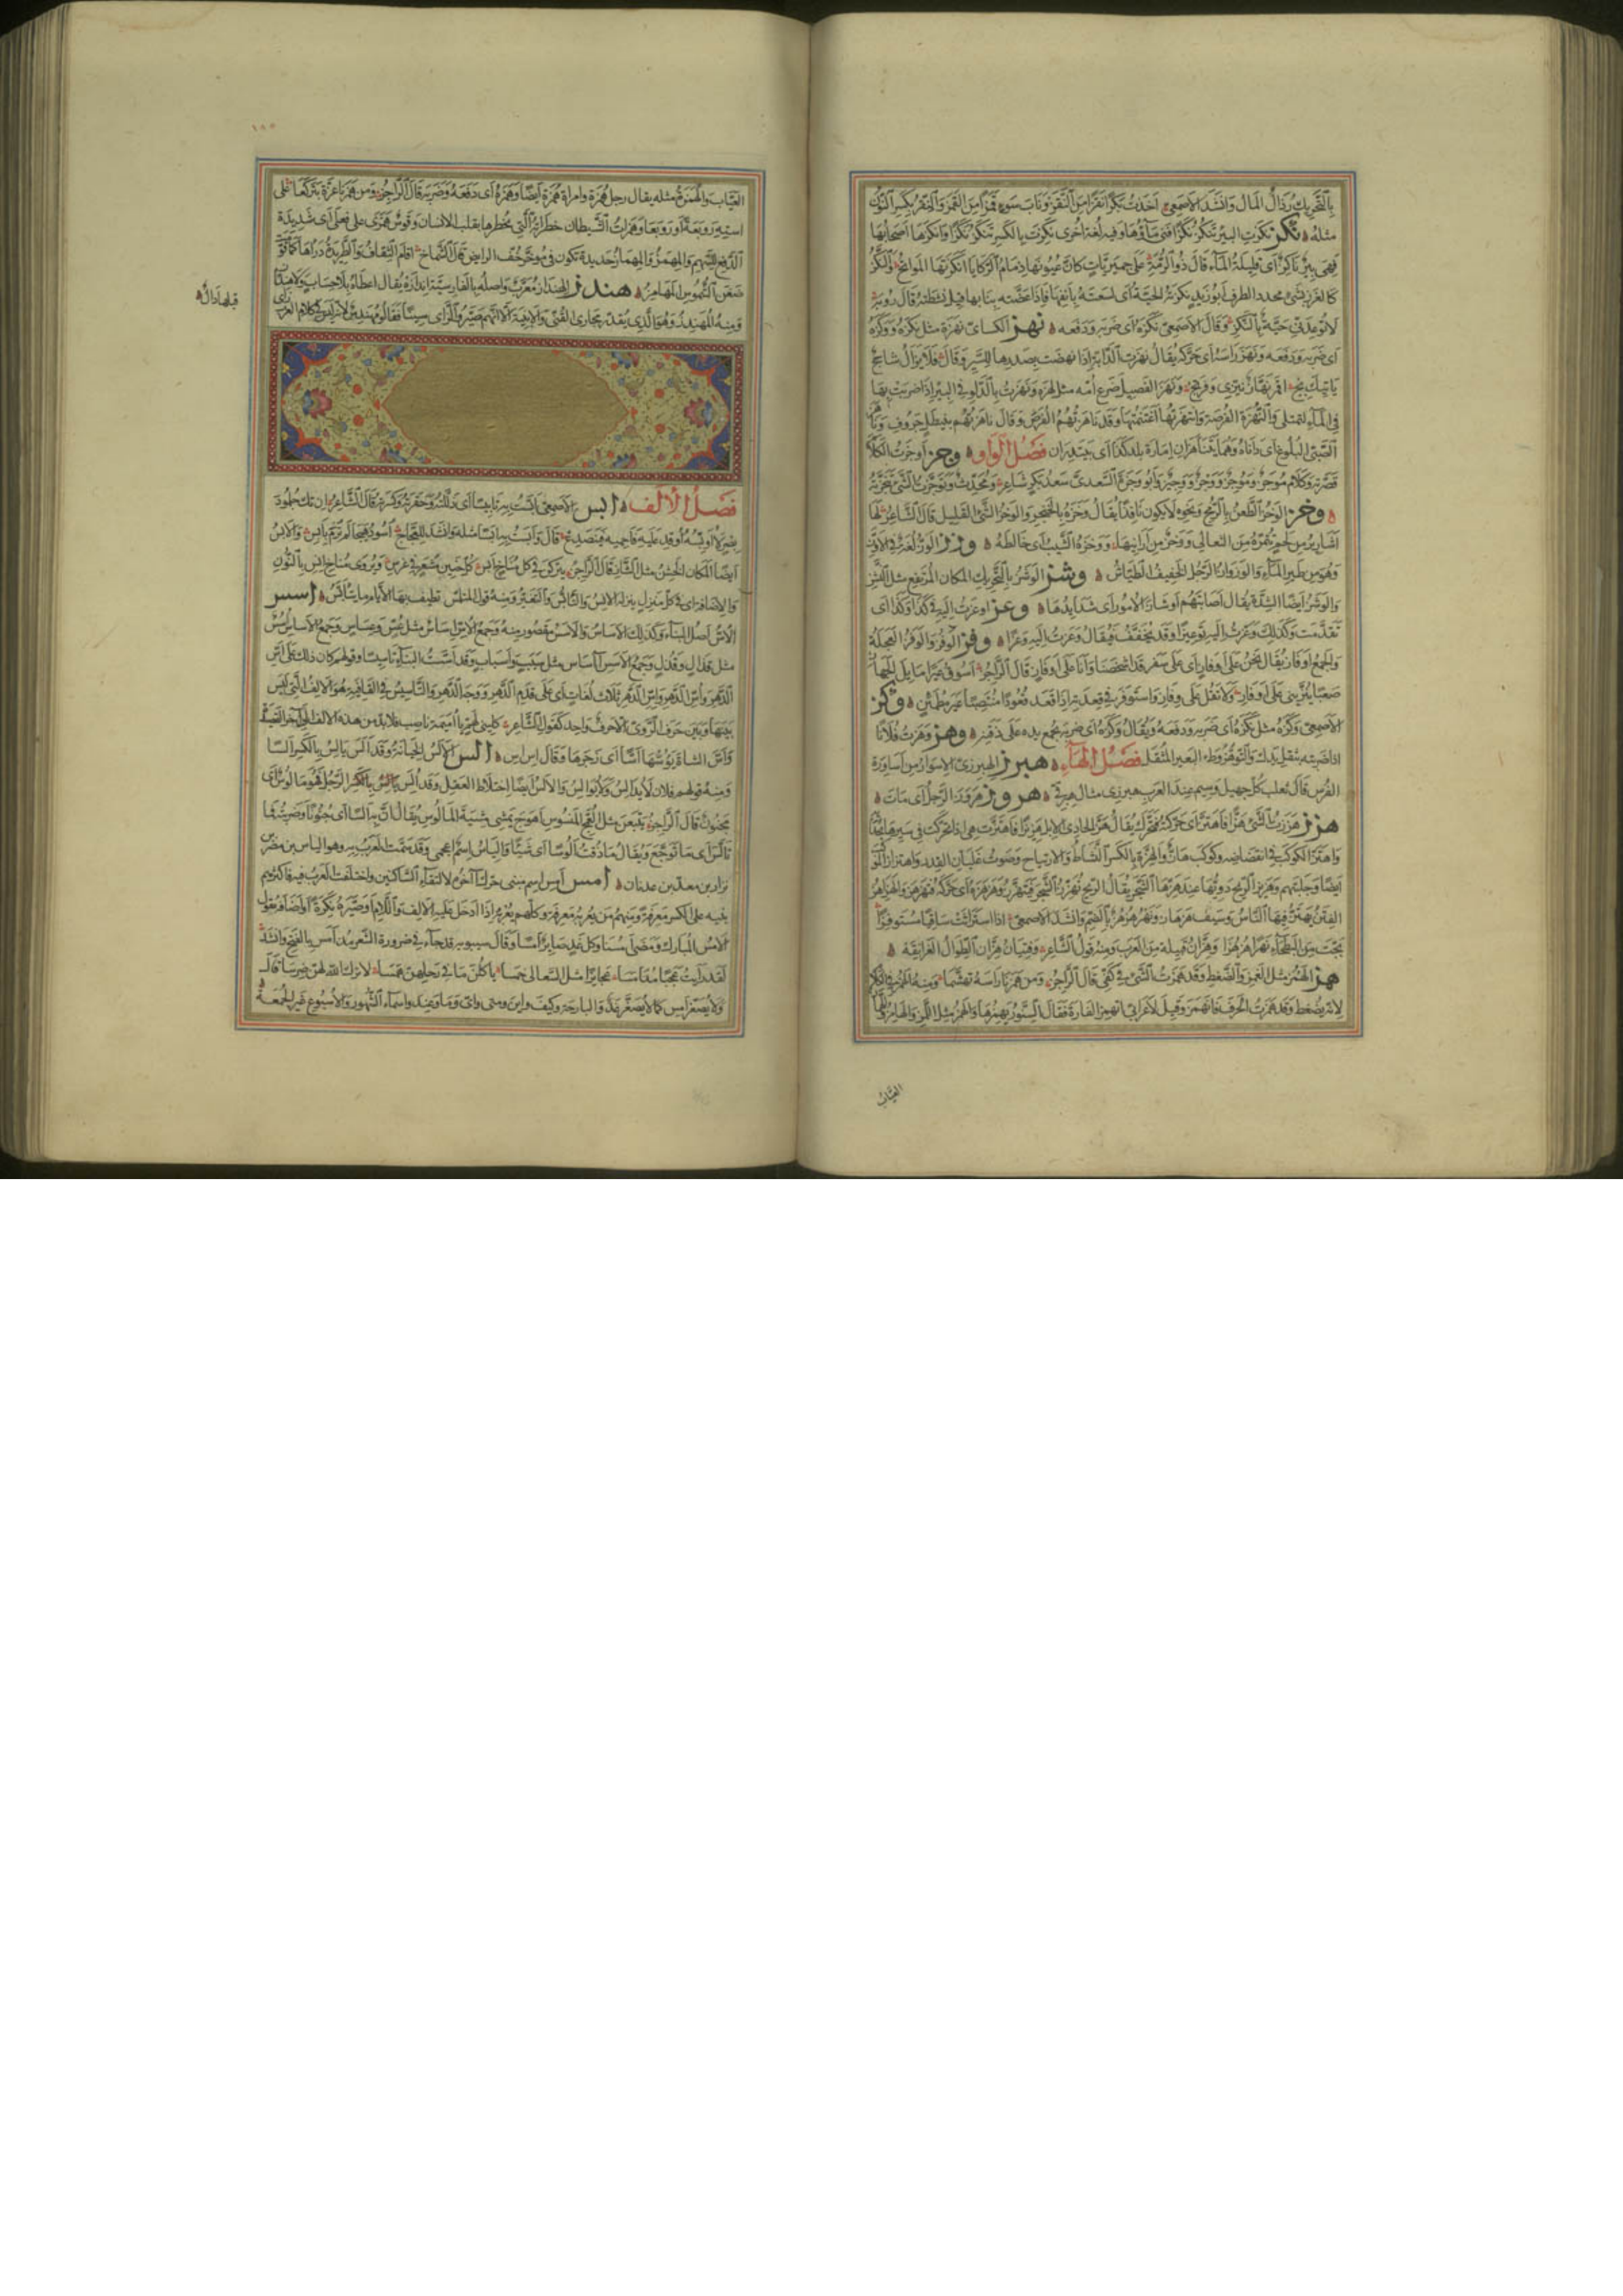 بالتحريك رذال المال وانشد الاصمعي اخذت بكرا نقزا من النقز وناب سوء قمزا من القمز والنقز بكسر النون
مثله نكز نكزت البئر تنكز نكزا فني ماؤها وفيه لغة اخرى نكزت بالكسر تنكز نكزا وانكزها اصحابها
فهي بئر ناكز اى قليلة الماء قال ذو الرمة على حميريات كان عيونها ذمام الركايا انكزتها المواتح والنكز
كالغرز بشئ محدد الطرف ابو زيد نكزته الحية اى لسعته بانفها فاذا عضته بنابها قيل نشطته قال رؤبة
لا توعدني حية بالنكز وقال الاصمعي نكزه اى ضربه ودفعه نهز الكسائي نهزه مثل نكزه ووكزه
اى ضربه ودفعه ونهز راسه اى حركه يقال نهزت الدابة اذا نهضت بصدرها للسير وقال فلا يزال شاحج
ياتيك بج اقمر نهاز ينزي وفرتج ونهز الفصيل ضرع امه مثل لهزه ونهزت بالدلو في البئر اذا ضربت بها
في الماء لتمتلى والنهزة الفرصة وانتهزتها اغتنمتها وقد ناهزتهم الفرص وقال ناهزتهم بنيطل جروف وناهز
الصبي البلوغ اى داناه وهما يتناهزان امارة بلد كذا اى يبتدران فصل الواو وجز اوجزت الكلام
قصرته وكلام موجز وموجز ووجز ووجيز وابو وجزة السعدي سعد بكر شاعر ومحدث وتوجزت الشئ تنجزته
وخز الوخز الطعن بالرمح ونحوه لا يكون نافذا يقال وخزه بالخنجر والوخز الشئ القليل قال الشاعر لها
اشارير من لحم تتمره من الثعالي ووخز من ارانيها ووخزه الشيب اى خالطه وزز الوز لغة في الاوز
وهو من طير الماء والوزواز الرجل الخفيف الطياش وشز الوشز بالتحريك المكان المرتفع مثل النشز
والوشز ايضا الشدة يقال اصابتهم اوشاز الامور اى شدايدها وعز اوعزت اليه في كذا وكذا اى
تقدمت وكذلك وعزت اليه توعيزا وقد يخفف فيقال وعزت اليه وعزا وفز الوفز والوفز العجلة
والجمع اوفاز يقال نحن على اوفاز اى على سفر قد اشخصنا وانا على اوفاز قال الراجز اسوق عيرا مايل الجهاز
صعبا ينزيني على اوفاز ولا تقل على وفاز واستوفز في قعدته اذا قعد قعودا منتصبا غير مطمئن وكز
الاصمعي وكزه مثل نكزه اى ضربه ودفعه ويقال وكزه اى ضربه بجمع يده على ذقنه وهز وهزت فلانا
اذا ضربته بثقل يدك والتوهز وطء البعير المثقل فصل الهاء هبرز الهبرزي الاسوار من اساورة
الفرس قال ثعلب كل جميل وسيم عند العرب هبرزي مثال هبرقي هروز هروز الرجل اى مات
هزز هززت الشئ هزا فاهتز اى حركته فتحرك يقال هز الحادي الابل هزيزا فاهتزت هي اذا تحركت في سيرها بحدائه
واهتز الكوكب في انقضاضه وكوكب هاز والهزة بالكسر النشاط والارتياح وصوت غليان القدر واهتزاز الموكب
ايضا وجلبتهم وهزيز الريح دويها عند هزها الشجر يقال الريح تهزز الشجر فتهزز وهزهزه اى حركه فتهزهز والهزاهز
الفتن يهتز فيها الناس وسيف هزهاز ونهر هزهز بالضم وانشد الاصمعي اذا استراثت ساقيا مستوفزا
بجت من البطحاء نهرا هزهزا وهزان قبيلة من العرب ومنه قول الشاعر وفتيان هزان الطوال الغرانقة
همز الهمز مثل الغمز والضغط وقد همزت الشئ في كفي قال الراجز ومن همزنا راسه تهشما ومنه الهمز في الكلام
لانه يضغط وقد همزت الحرف فانهمز وقيل لاعرابي اتهمز الفارة فقال السنور يهمزها والهمز مثل اللمز والهامز
العياب
١٨٥
العياب والهمزة مثله يقال رجل همزة وامراة همزة ايضا وهمزه اى دفعه وضربه قال الراجز ومن همزنا عزه تبركعا على
استه روبعة او روبعا وهمزات الشيطان خطراته التي يخطرها بقلب الانسان وقوس همزى على فعلى اى شديدة
الدفع للسهم والمهمز والمهماز حديدة تكون في مؤخر خف الرايض قال الشماخ اقام الثقاف والطريدة دراها كما قومت
ضغن الشموس المهامز هندز الهنداز معرب واصله بالفارسية اندازه يقال اعطاه بلا حساب ولا هنداز
ومنه المهندز وهو الذي يقدر مجاري القني والابنية الا انهم صيروا الزاى سينا فقالوا مهندس لانه ليس في كلام العرب زاى
قبلها دال
فصل الالف ابس الاصمعي ابست به تابيسا اى ذللته وحقرته وكسرته قال الشاعر ان تك جلمود
بصر لا اوبسه اوقد عليه فاحميه فينصدع قال وابست به ابسا مثله وانشد للعجاج اسود هيجا لم ترم بابس والابس
ايضا المكان الخشن مثل الشاز قال الراجز يتركن في كل مناخ ابس كل جنين مشعر في غرس ويروى مناخ انس بالنون
والاضافة اى في كل منزل ينزله الانس والتابس التغير ومنه قول المتلمس تطيف بها الايام ما يتابس اسس
الاس اصل البناء وكذلك الاساس والاسس مقصور منه وجمع الاس اساس مثل عس وعساس وجمع الاساس اسس
مثل قذال وقذل وجمع الاسس آساس مثل سبب واسباب وقد اسست البناء تاسيسا وقولهم كان ذلك على اس
الدهر واس الدهر واس الدهر ثلاث لغات اى على قدم الدهر ووجه الدهر والتاسيس في القافية هو الالف التي ليس
بينها وبين حرف الروي الا حرف واحد كقول الشاعر كليني لهم يا اميمة ناصب فلا بد من هذه الالف الى آخر القصيدة
واس الشاة يؤسها اسا اى زجرها وقال اس اس الس الالس الخيانة وقد الس يالس بالكسر السا
ومنه قولهم فلان لا يدالس ولا يوالس والالس ايضا اختلاط العقل وقد الس يالس بالكسر الرجل فهو مالوس اى
مجنون قال الراجز يتبعن مثل العمج المنسوس اهوج يمشي مشية المالوس يقال ان به السا اى جنونا وضربته فما
تالس اى ما توجع ويقال ما ذقت الوسا اى شيئا والياس اسم اعجمي وقد سمت العرب به وهو الياس بن مضر بن
نزار بن معد بن عدنان امس امس اسم مبني حرك آخره لالتقاء الساكنين واختلفت العرب فيه فاكثرهم
يبنيه على الكسر معرفة ومنهم من يعربه معرفة وكلهم يعربه اذا ادخل عليه الالف واللام او صيره نكرة او اضافه تقول
الامس المبارك ومضى امسنا وكل غد صاير امسا وقال سيبويه قد جاء في ضرورة الشعر مذ امس بالفتح وانشد
لقد رايت عجبا مذ امسا عجايزا مثل السعالى خمسا ياكلن ما في رحلهن همسا لا ترك الله لهن ضرسا قال
ولا يصغر امس كما لا يصغر غد والبارحة وكيف واين ومتى واى وما وعند واسماء الشهور والاسبوع غير الجمعة